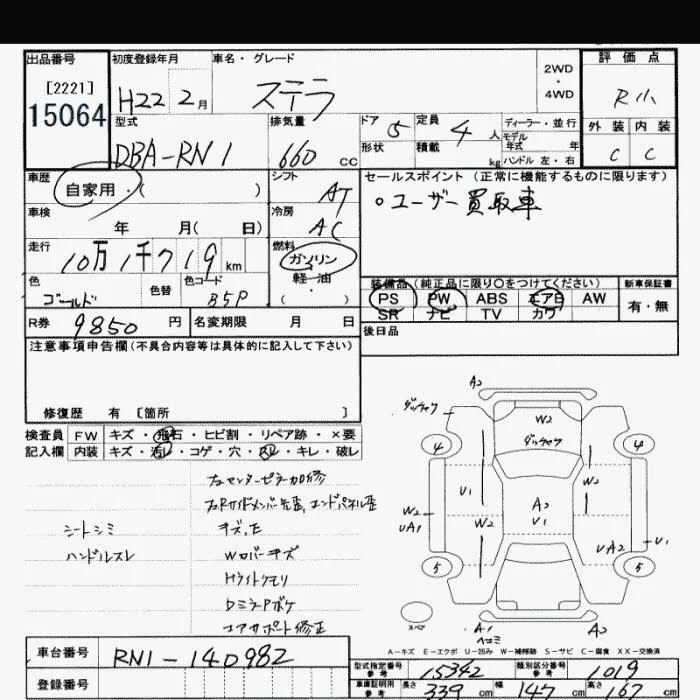 出品番号 初度登録年月 車名・グレード 2WD・4WD 評価点
[2221]
15064 H22 2月 ステラ R小
型式 排気量 ドア 5 定員 4人 ディーラー・並行 外装 内装
形状 積載 kg モデル年式 年式 ハンドル 左・右
DBA-RN1 660 CC C C
車歴 自家用・( ) シフト AT セールスポイント (正常に機能するものに限ります)
車検 年 月( 日) 冷房 AC ○ユーザー買取車
走行 10万1千719km 燃料 ガソリン
軽・油
( ・ )
色 ゴールド 色替 色コード B5P
装備品 (純正品に限り○をつけてください) 新車保証書
PS PW ABS エアB AW 有・無
SR ナビ TV カワ
R券 9850円 名変期限 月 日 後日品
注意事項申告欄(不具合内容等は具体的に記入して下さい)
修復歴 有 〔箇所 〕
検査員 FW キズ・飛石・ヒビ割・リペア跡・×要
記入欄 内装 キズ・汚レ・コゲ・穴・スレ・キレ・破レ
シートシミ
ハンドルスレ
キズ,E
Wロバーキズ
Hライトクモリ
DミラーPボケ
コアサポート修正
A2
W2
4 4
U1 A2 V1 W2
W2 UA1 W2 UA2 U1
5 5
スペア A1 ヘコミ A2
A-キズ E-エクボ U-凹み W-補修跡 S-サビ C-腐食 XX-交換済
車台番号 RN1-140982
登録番号
型式指定番号 参考 15342 類別区分番号 参考 1019
車庫証明用 参考 長さ 339cm 幅 147cm 高さ 167cm